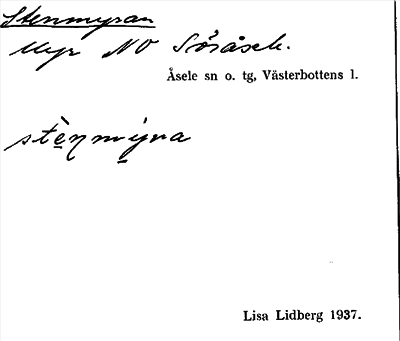 Stenmyran
Myr NO Söråsele.
Åsele sn o. tg, Västerbottens l.
stè̱ŋmy̱ra
Lisa Lidberg 1937.